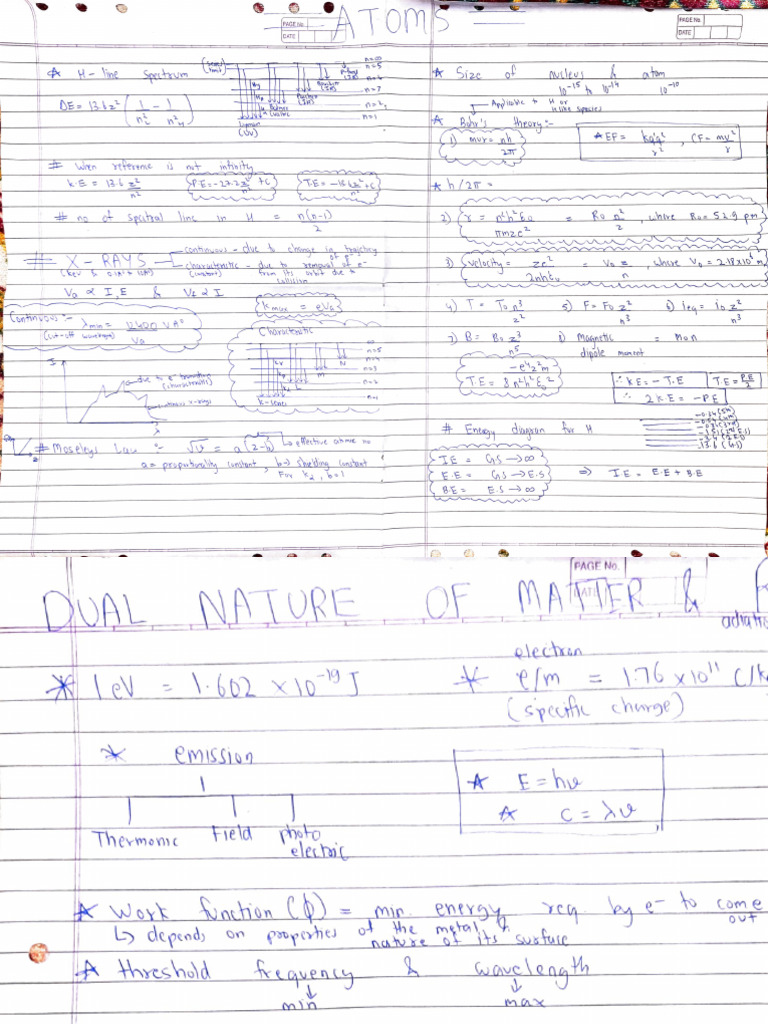 PAGE No.
DATE
ATOMS
PAGE No.
DATE
* H-line Spectrum
n=∞
n=5
n=2
n=1
Lyman
(UV)
ΔE = 13.6z² (1/n² - 1/n²)
# when reference is not infinity
K.E = 13.6 z²/n²
P.E = -27.2 z²/n² + C
T.E = -13.6 z²/n² + C
# no of spectral line in H = n(n-1)/2
# X-RAYS
continuous - due to change in trajectory of e-
characteristic - due to removal of e- from its orbit due to collision
Va ∝ I,E & Vf ∝ I
Kmax = eVa
Continuous :- λmin = 12400/Va A°
(cut-off wavelength)
Characteristic
n=5
n=1
K-series
I
due to e- transition
(characteristic)
continuous x-rays
λ
# Moseleys Law :- √v = a(z-b) → effective atomic no
a = proportionality constant, b → shielding constant
For kα, b=1
* Size of nucleus & atom
10-15 to 10-14 10-10
Applicable to H or H like species
* Bohr's theory:-
1) mvr = nh/2π
* EF = kq²q/r² , CF = mv²/r
* h/2π =
2) r = n²h²ε₀/πmze² = R₀ n²/z, where R₀ = 52.9 pm
3) velocity = ze²/2nhε₀ = V₀ z/n, where V₀ = 2.18×10⁶ m
4) T = T₀ n³/z² 5) F = F₀ z³/n³ 6) ieq = i₀ z²/n³
7) B = B₀ z³/n⁵ Magnetic dipole moment = M₀n
T.E = -e⁴z²m/8n²h²ε₀²
∴ KE = -T.E T.E = P.E/2
∴ 2K.E = -P.E
# Energy diagram for H
-13.6 (G.S)
I.E = GS → ∞
E.E = GS → E.S
B.E = E.S → ∞
⇒ I.E = E.E + B.E
PAGE No.
DUAL NATURE OF MATTER &
adiatio
* 1eV = 1.602 ×10-19 J
electron
* e/m = 1.76 ×10¹¹ C/k
(specific charge)
* emission
Thermonic Field photo electric
* E = hν
* C = λν
* Work function (ϕ) = min. energy req by e- to come out
↳ depends on properties of the metal & nature of its surface
* threshold frequency & wavelength
↓ ↓
min max